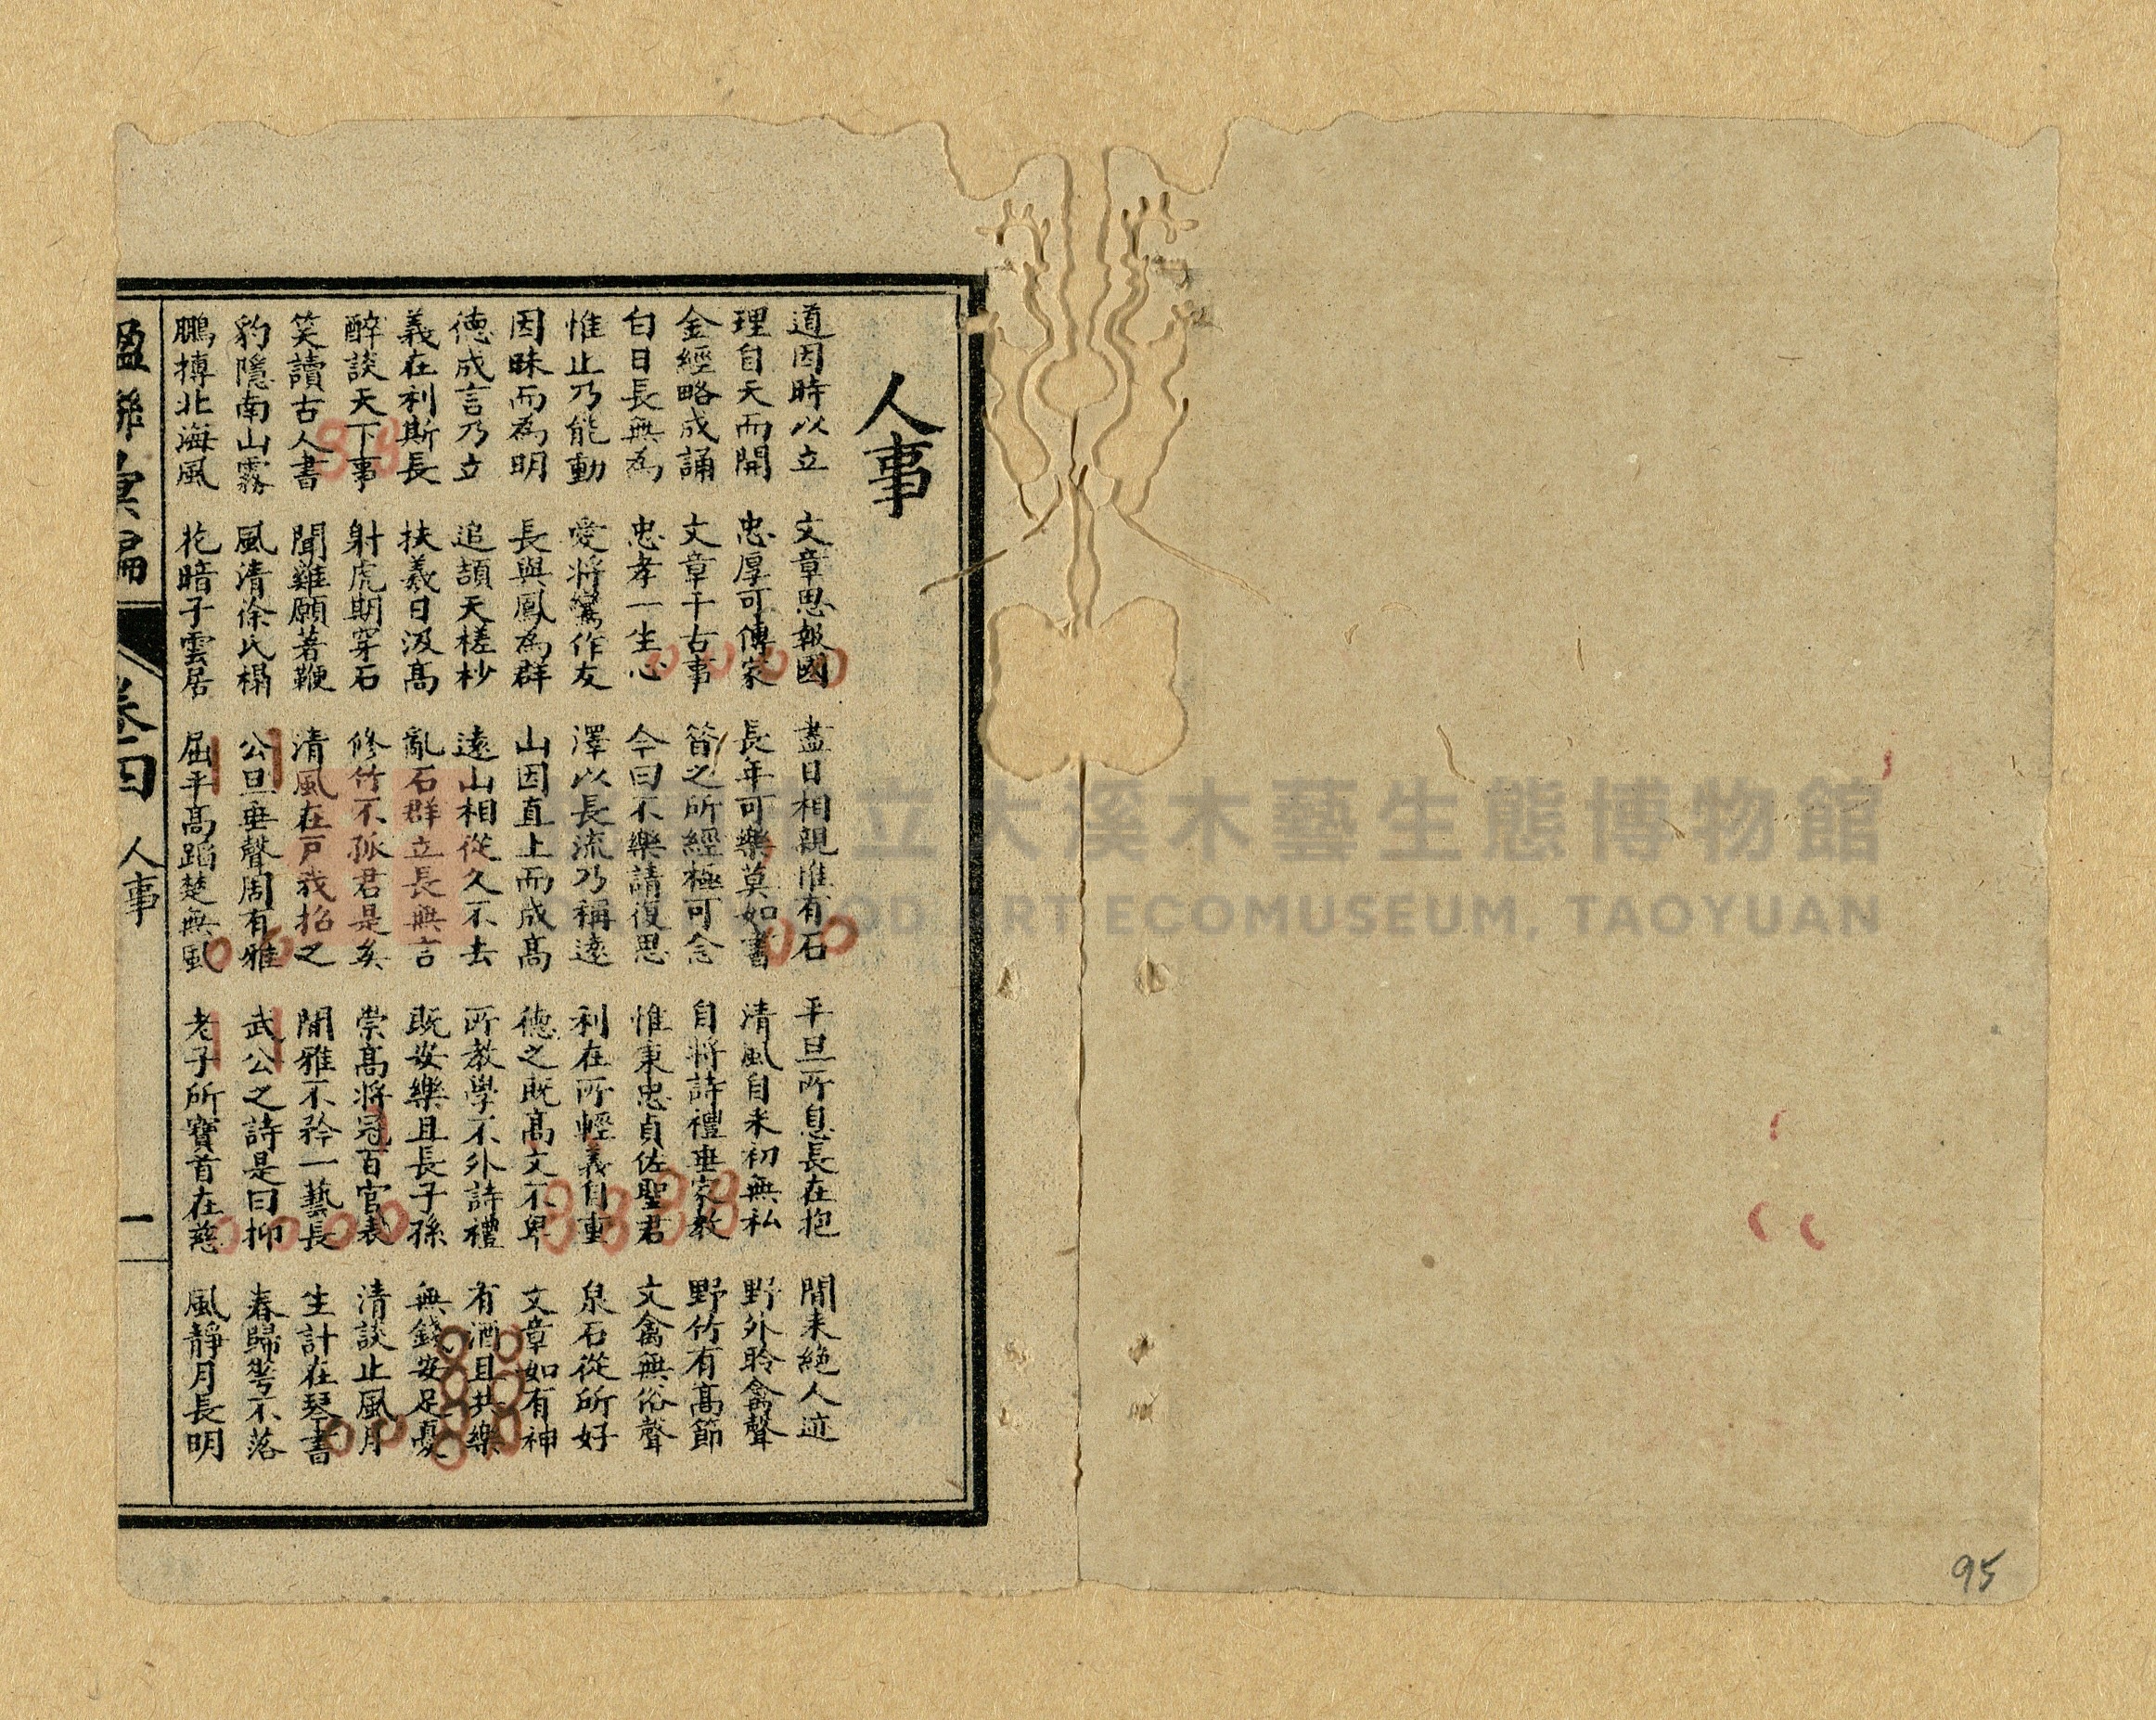 人事
道因時以立 文章思報國 盡日相親惟有石 平旦所息長在抱 閒來絕人迹
理自天而開 忠厚可傳家 長年可樂莫如書 清風自來初無私 野外聆禽聲
金經略成誦 文章千古事 昝之所經極可念 自將詩禮垂家教 野竹有高節
白日長無為 忠孝一生心 今日不樂請復思 惟秉忠貞佐聖君 文禽無俗聲
惟止乃能動 愛將鸞作友 澤以長流乃稱遠 利在所輕義自重 泉石從所好
因昧而為明 長與鳳為群 山因直上而成高 德之既高文不卑 文章如有神
德成言乃立 追頡天槎杪 遠山相從久不去 所教學不外詩禮 有酒且共樂
義在利斯長 扶羲日汲高 亂石群立長無言 既安樂且長子孫 無錢安足憂
醉談天下事 射虎期穿石 修竹不孤君是矣 崇高將冠百官表 清談止風月
笑讀古人書 聞雞願著鞭 清風在戶我招之 閒雅不矜一藝長 生計在琴書
豹隱南山霧 風清徐氏榻 公旦垂聲周有雅 武公之詩是曰抑 春歸花不落
鵬搏北海風 花暗子雲居 屈平高蹈楚無風 老子所寶首在慈 風靜月長明
楹聯彙編 卷四 人事 一
立大溪木藝生態博物館
ART ECOMUSEUM, TAOYUAN
95